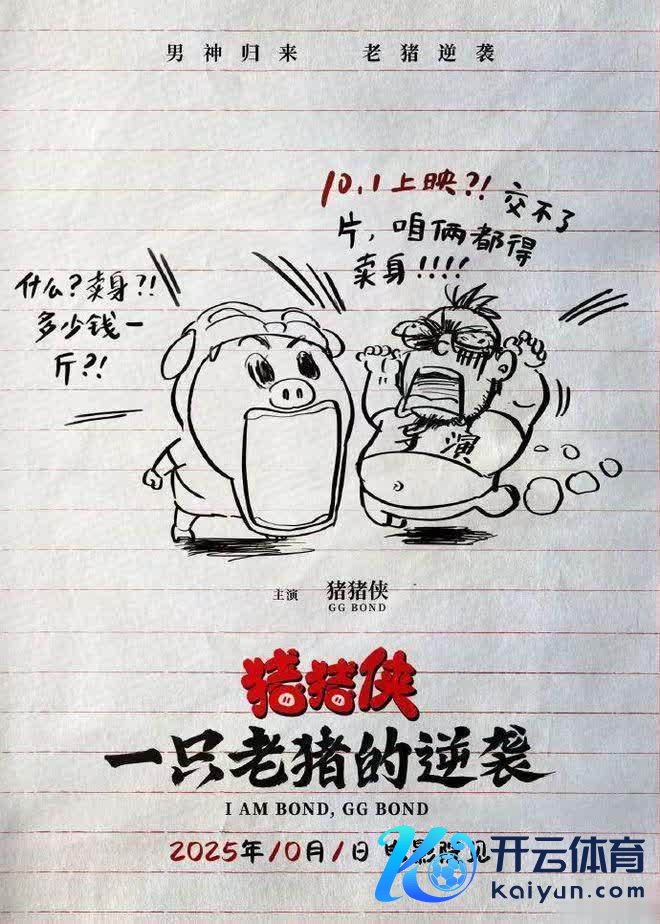 男神归来 老猪逆袭
10.1上映?! 交不了
片，咱俩都得
卖身!!!!
什么?卖身?!
多少钱一
斤?!
导演
主演 猪猪侠
GG BOND
猪猪侠
一只老猪的逆袭
I AM BOND, GG BOND
2025年10月1日 电影院见
开云体育
kaiyun.com